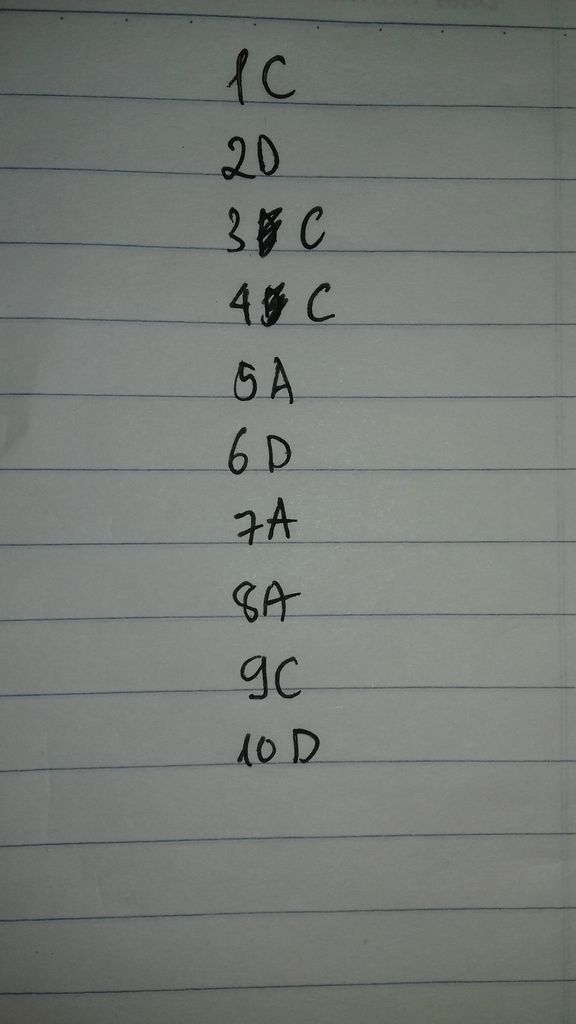 1 C
2 D
3 C
4 C
5 A
6 D
7 A
8 A
9 C
10 D